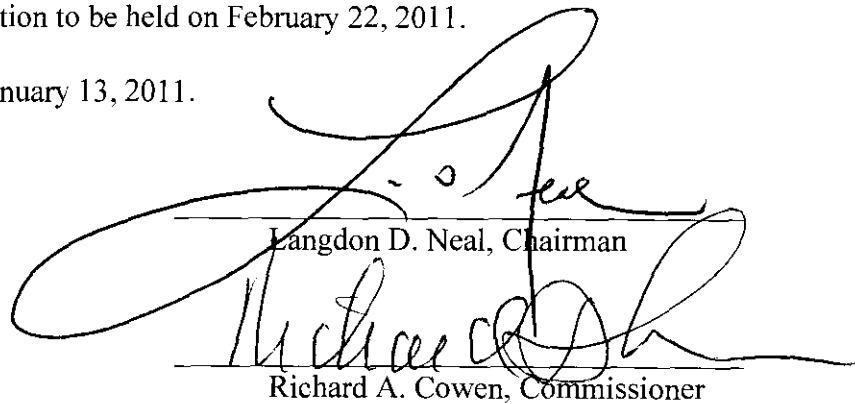 tion to be held on February 22, 2011.
nuary 13, 2011.
Langdon D. Neal, Chairman
Richard A. Cowen, Commissioner